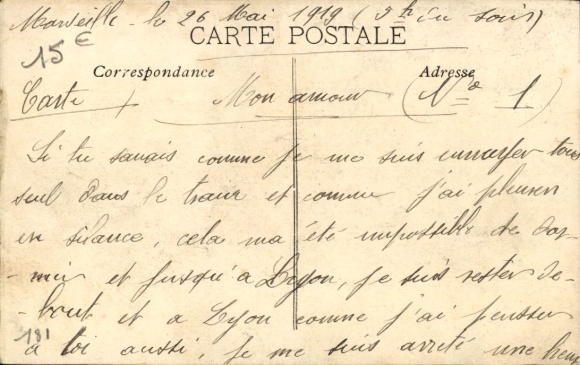 Marseille - le 26 Mai 1919 (5h du soir)
15 €
CARTE POSTALE
Correspondance Adresse
Carte Mon amour (No 1)
Si tu savais comme je me suis ennuyer tous
seul dans le train et comme j'ai pleurer
en silance, cela ma été impossible de dor-
-mir et jusqu'a Lyon, je suis rester de-
-bout et a Lyon comme j'ai penser
a toi aussi, je me suis arreté une heure
181